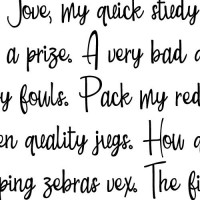 Jove, my quick study
a prize. A very bad
y fouls. Pack my red
en quality jugs. How
ping zebras vex. The fi